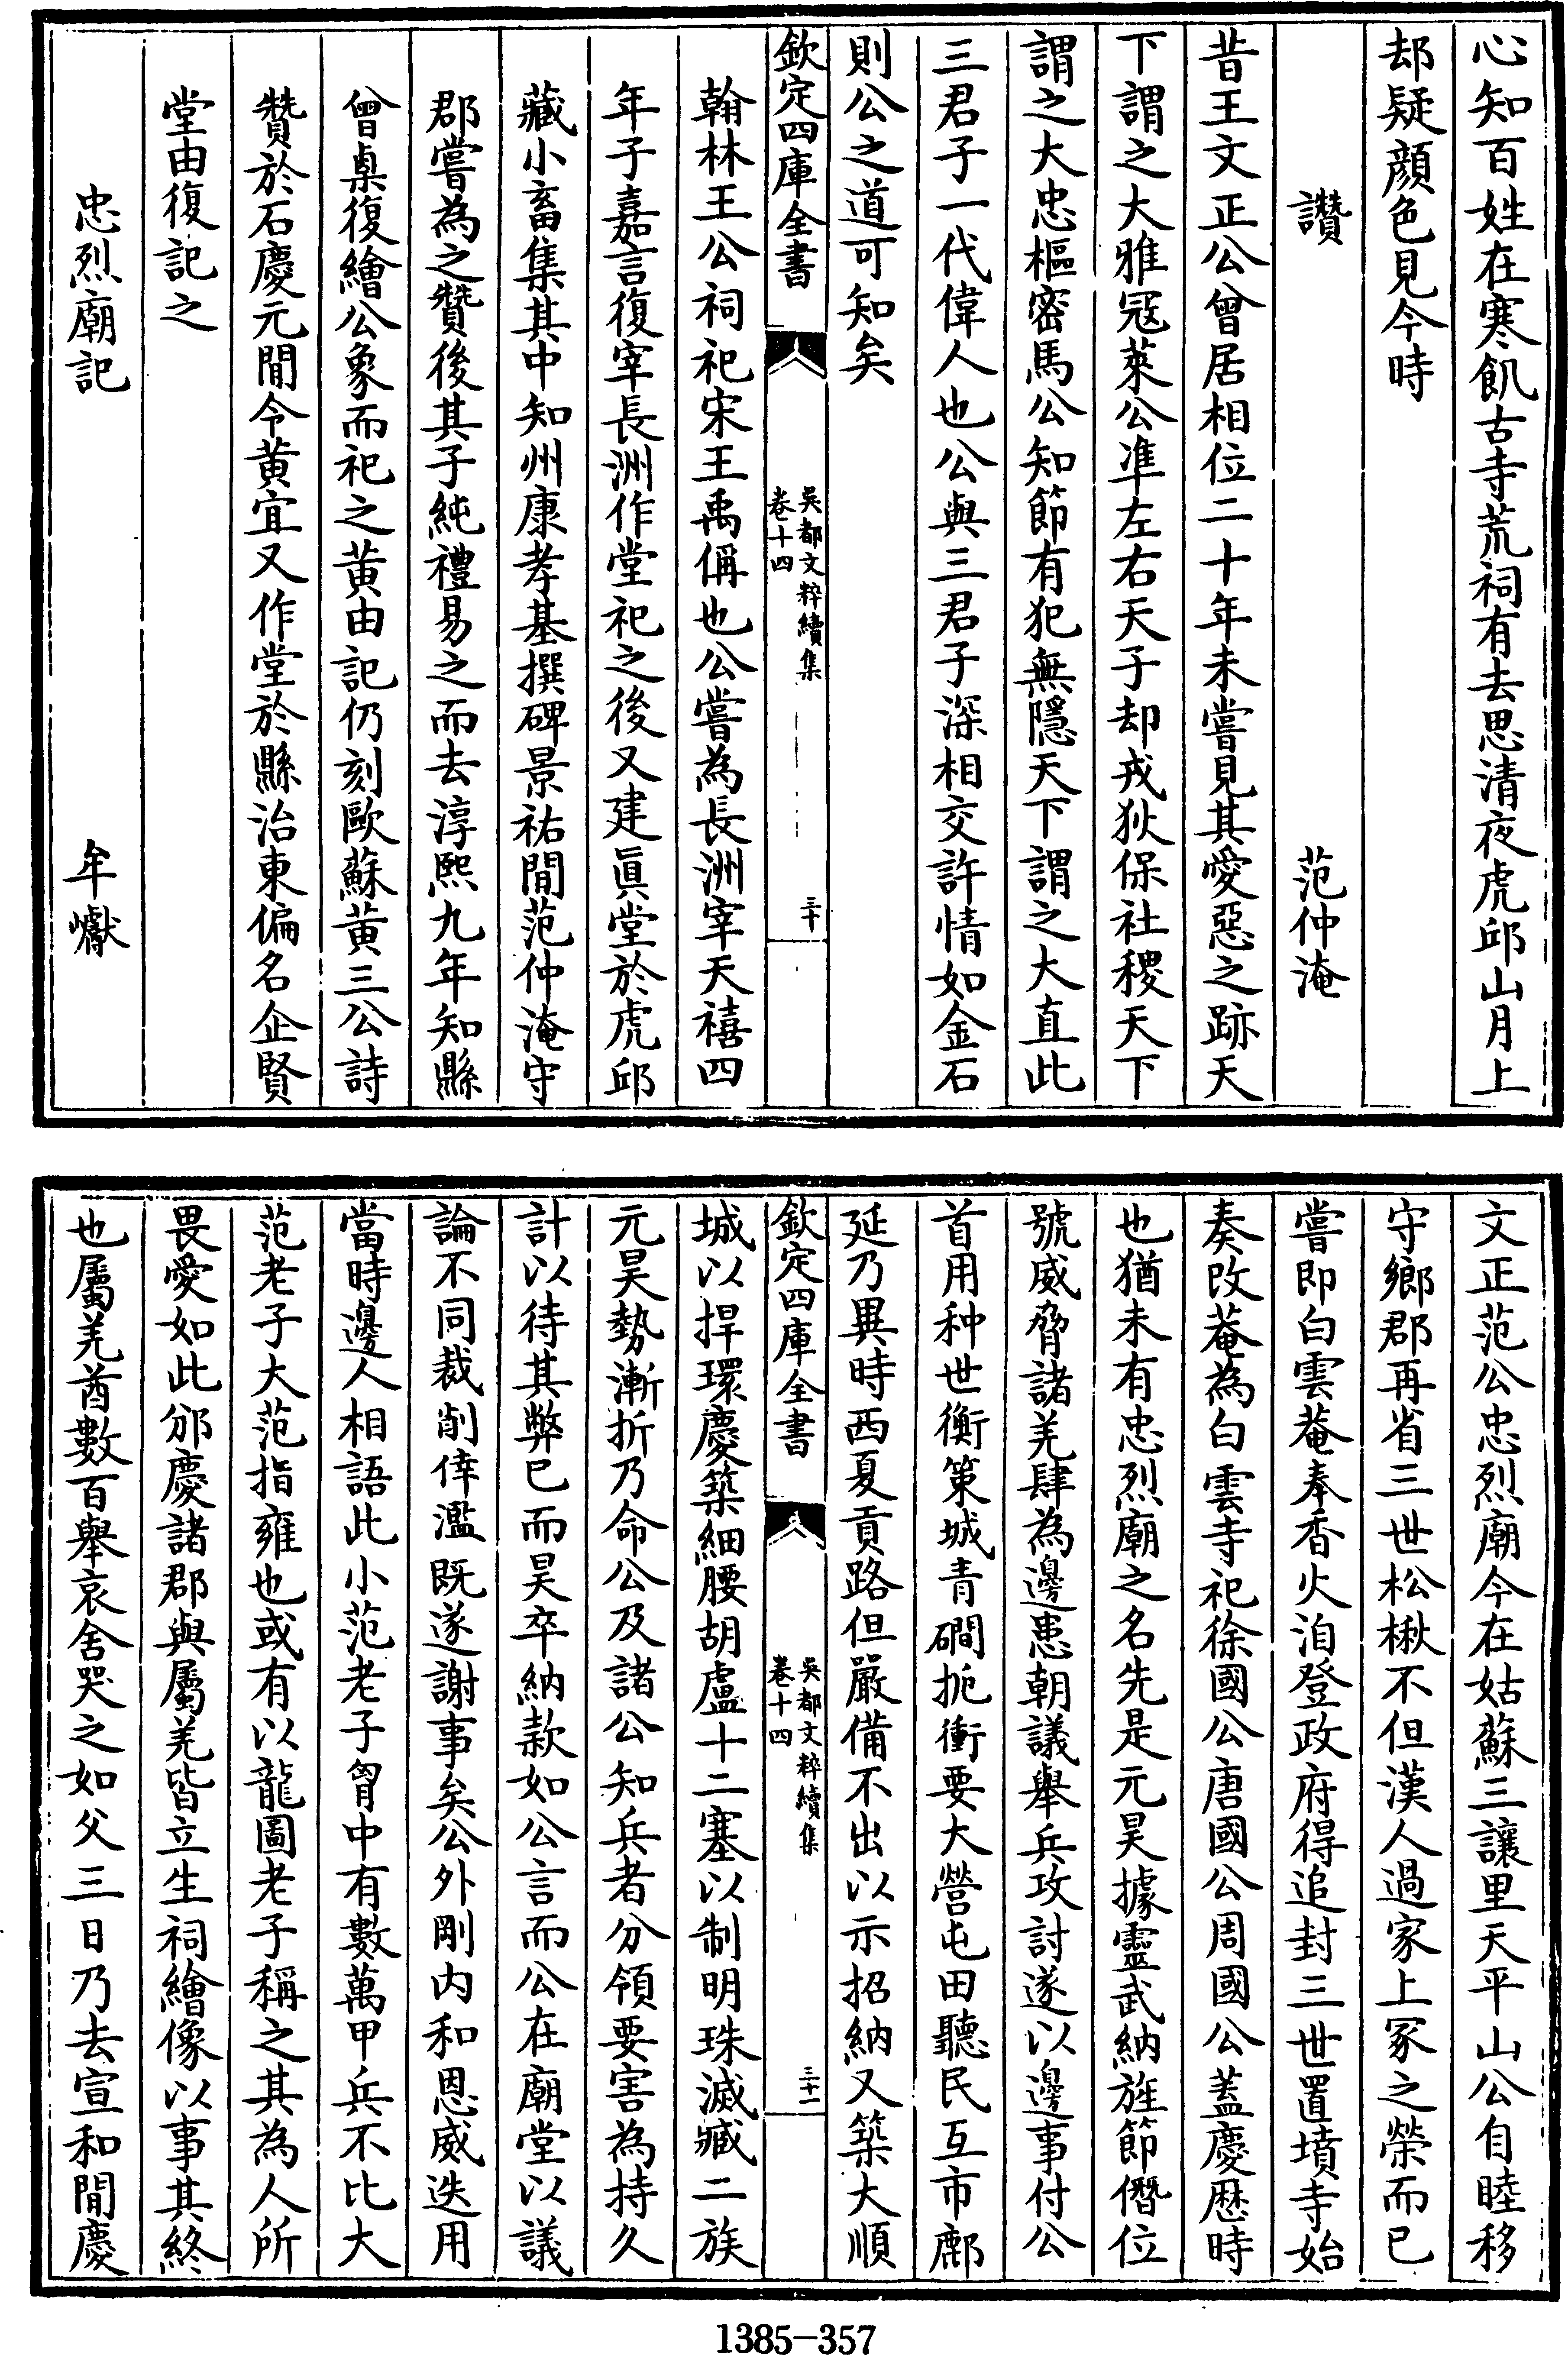 心知百姓在寒飢古寺荒祠有去思清夜虎邱山月上
却疑顔色見今時
讚 范仲淹
昔王文正公曾居相位二十年未嘗見其愛惡之跡天
下謂之大雅冦萊公凖左右天子却戎狄保社稷天下
謂之大忠樞密馬公知節有犯無隱天下謂之大直此
三君子一代偉人也公與三君子深相交許情如金石
則公之道可知矣
欽定四庫全書 吳都文粹續集 卷十四 三十
翰林王公祠祀宋王禹偁也公嘗為長洲宰天禧四
年子嘉言復宰長洲作堂祀之後又建眞堂於虎邱
藏小畜集其中知州康孝基撰碑景祐間范仲淹守
郡嘗為之贊後其子純禮易之而去淳熙九年知縣
曾㮚復繪公象而祀之黄由記仍刻歐蘇黄三公詩
贊於石慶元間令黄宜又作堂於縣治東偏名企賢
堂由復記之
忠烈廟記 牟巘
文正范公忠烈廟今在姑蘇三讓里天平山公自睦移
守鄉郡再省三世松楸不但漢人過家上冢之榮而已
嘗即白雲菴奉香火洎登政府得追封三世置墳寺始
奏改菴為白雲寺祀徐國公唐國公周國公蓋慶歴時
也猶未有忠烈廟之名先是元昊據靈武納旌節僭位
號威脅諸羌肆為邊患朝議舉兵攻討遂以邊事付公
首用种世衡策城青磵扼衝要大營屯田聽民互市鄜
延乃異時西夏貢路但嚴備不出以示招納又築大順
欽定四庫全書 吳都文粹續集 卷十四 三十一
城以捍環慶築細腰胡盧十二塞以制明珠滅臧二族
元昊勢漸折乃命公及諸公知兵者分領要害為持久
計以待其弊已而昊卒納款如公言而公在廟堂以議
論不同裁削倖濫既遂謝事矣公外剛内和恩威迭用
當時邊人相語此小范老子胷中有數萬甲兵不比大
范老子大范指雍也或有以龍圖老子稱之其為人所
畏愛如此邠慶諸郡與屬羌皆立生祠繪像以事其終
也屬羌酋數百舉哀舍哭之如父三日乃去宣和間慶
1385-357